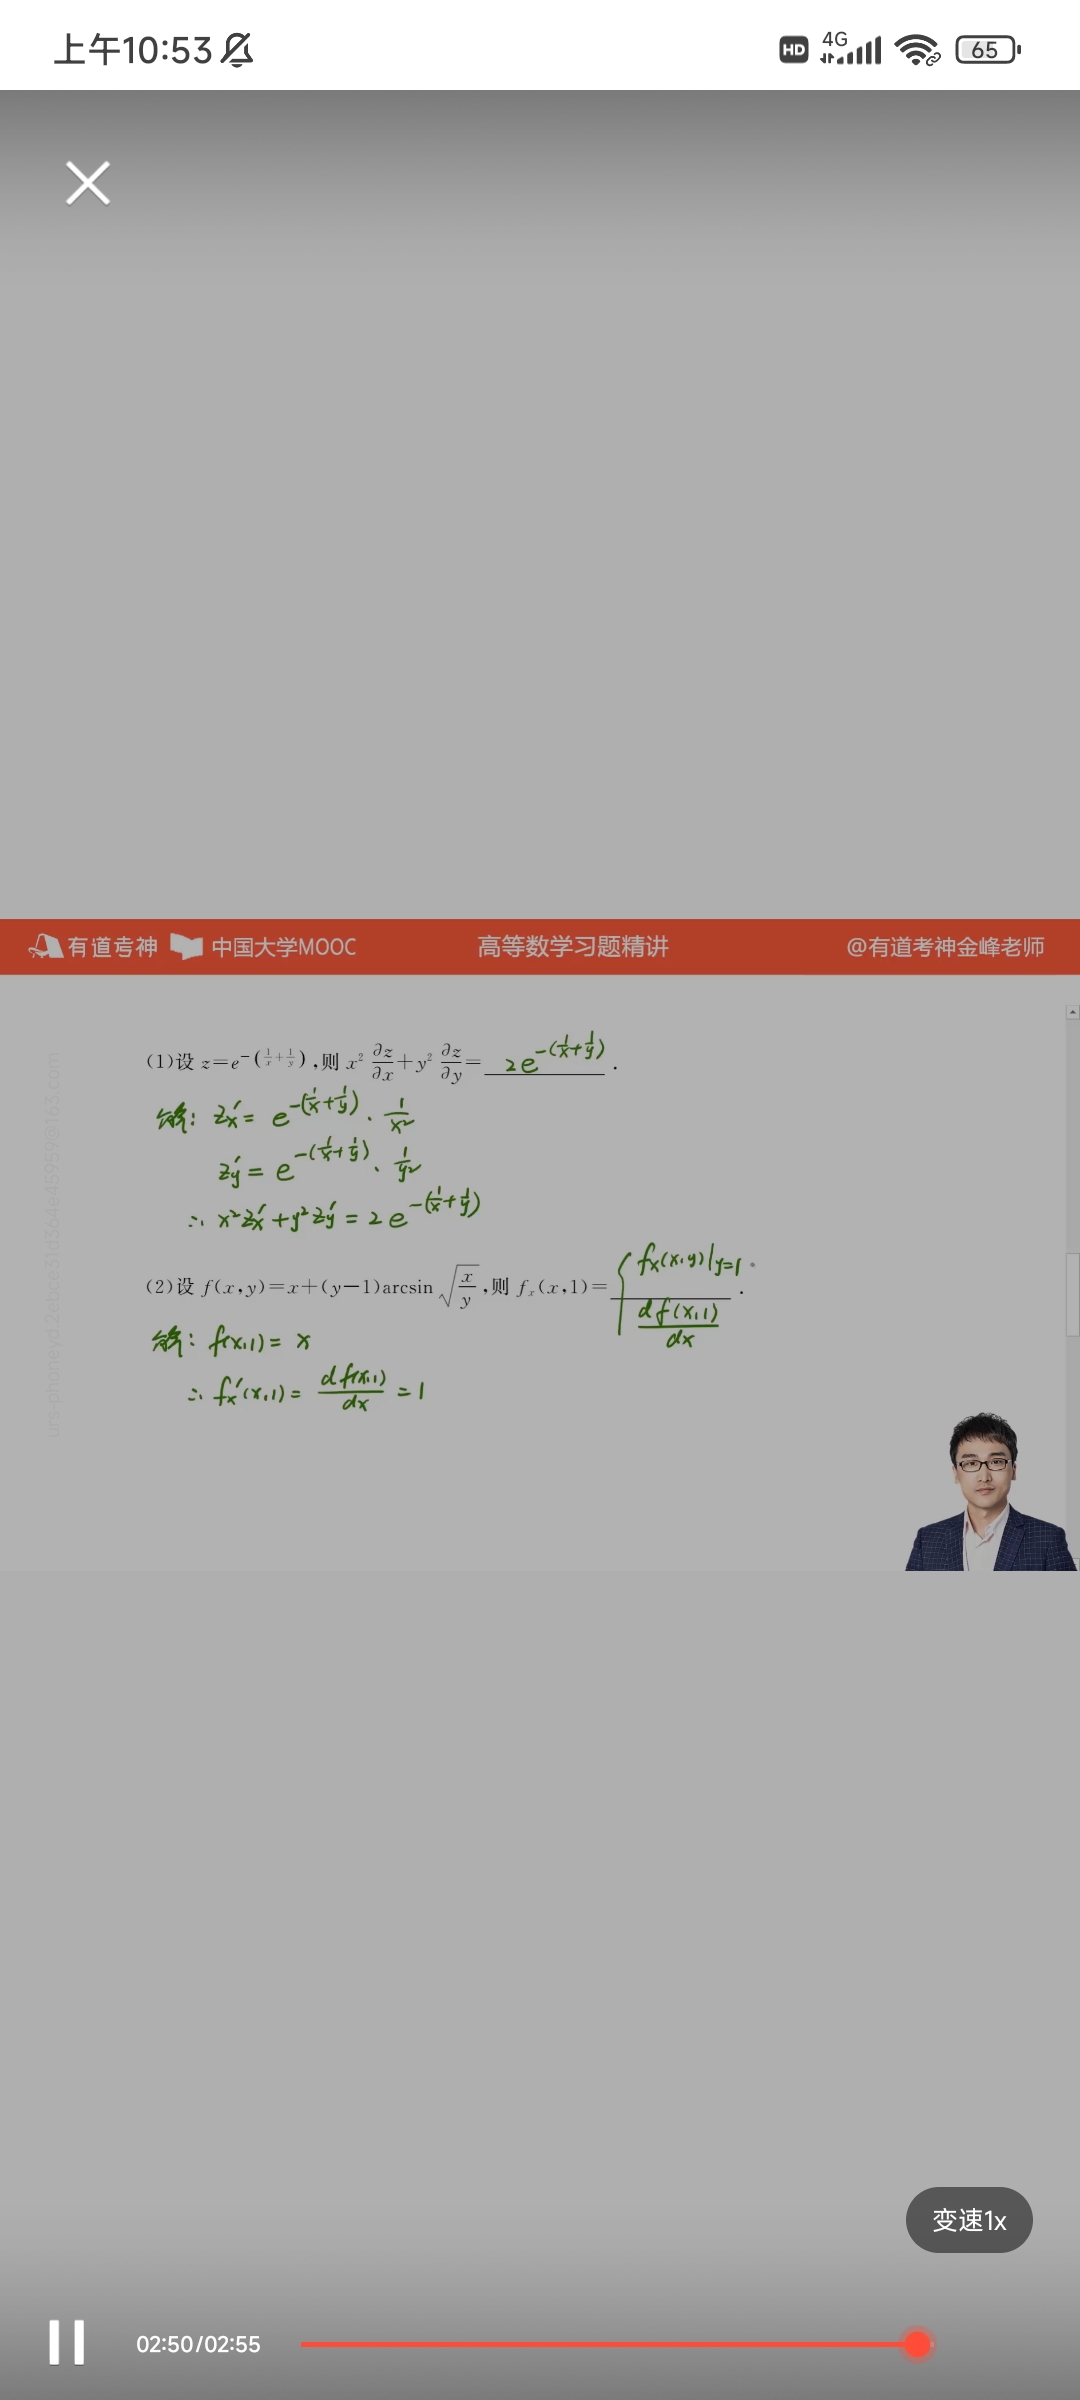 上午10:53 HD 4G 65
有道考神 中国大学MOOC 高等数学习题精讲 @有道考神金峰老师
(1)设 z=e^{-(1/x+1/y)},则 x² ∂z/∂x+y² ∂z/∂y= 2e^{-(1/x+1/y)} .
解: z'x= e^{-(1/x+1/y)}·1/x²
z'y = e^{-(1/x+1/y)}·1/y²
∴ x²z'x+y²z'y = 2e^{-(1/x+1/y)}
(2)设 f(x,y)=x+(y-1)arcsin√(x/y),则 fx(x,1)= { fx(x,y)|y=1 .
df(x,1)/dx
解: f(x,1)= x
∴ f'x(x,1)= df(x,1)/dx =1
变速1x
02:50/02:55